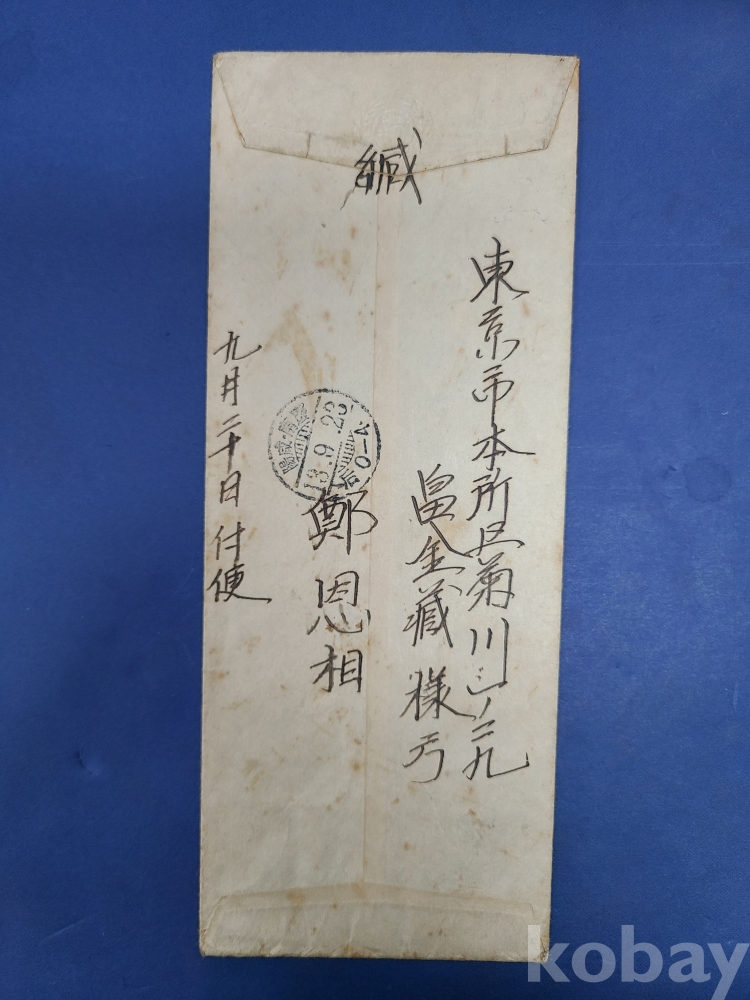 緘
東京市本所区菊川三ノ二九
畠金藏様方
鄭恩相
九月二十日付便
13.9.23
kobay